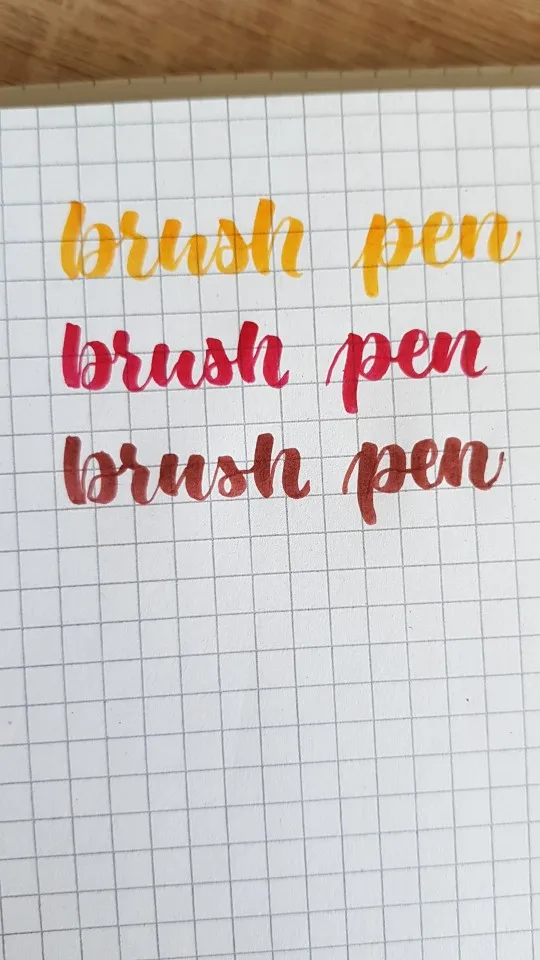 brush pen
brush pen
brush pen